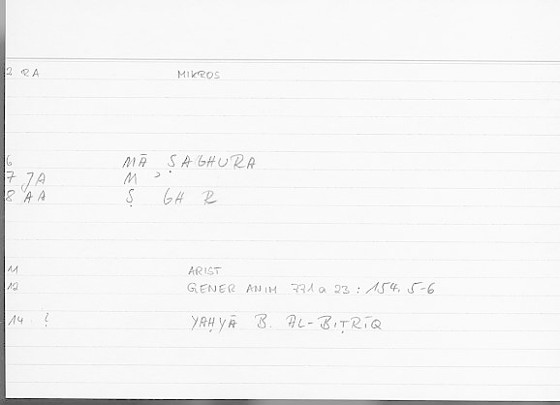 2 RA MIKROS
6 MĀ ṢAGHURA
7 JA M ʾ
8 AA Ṣ GH R
11 ARIST
12 GENER ANIM 771 a 23 : 154. 5-6
14 ? YAḤYĀ B. AL-BIṬRĪQ